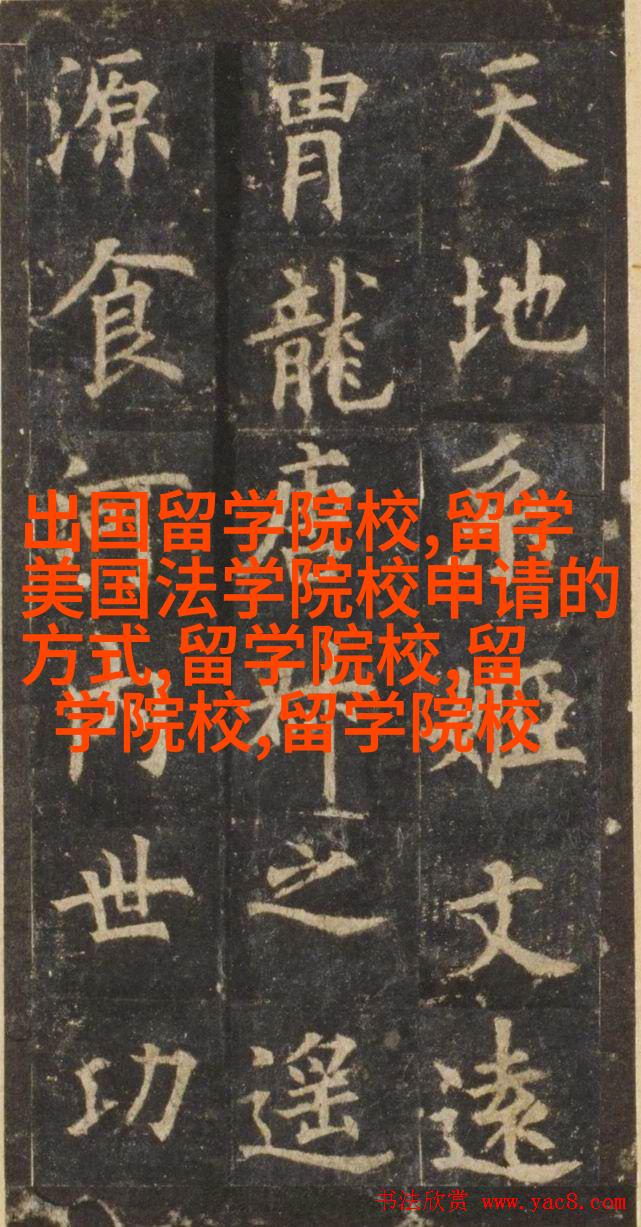 天地系姬文遠
胄龍之遥
源食河世功
出国留学院校,留学
美国法学院校申请的
方式,留学院校,留
学院校,留学院校
书法欣赏 www.yac8.com